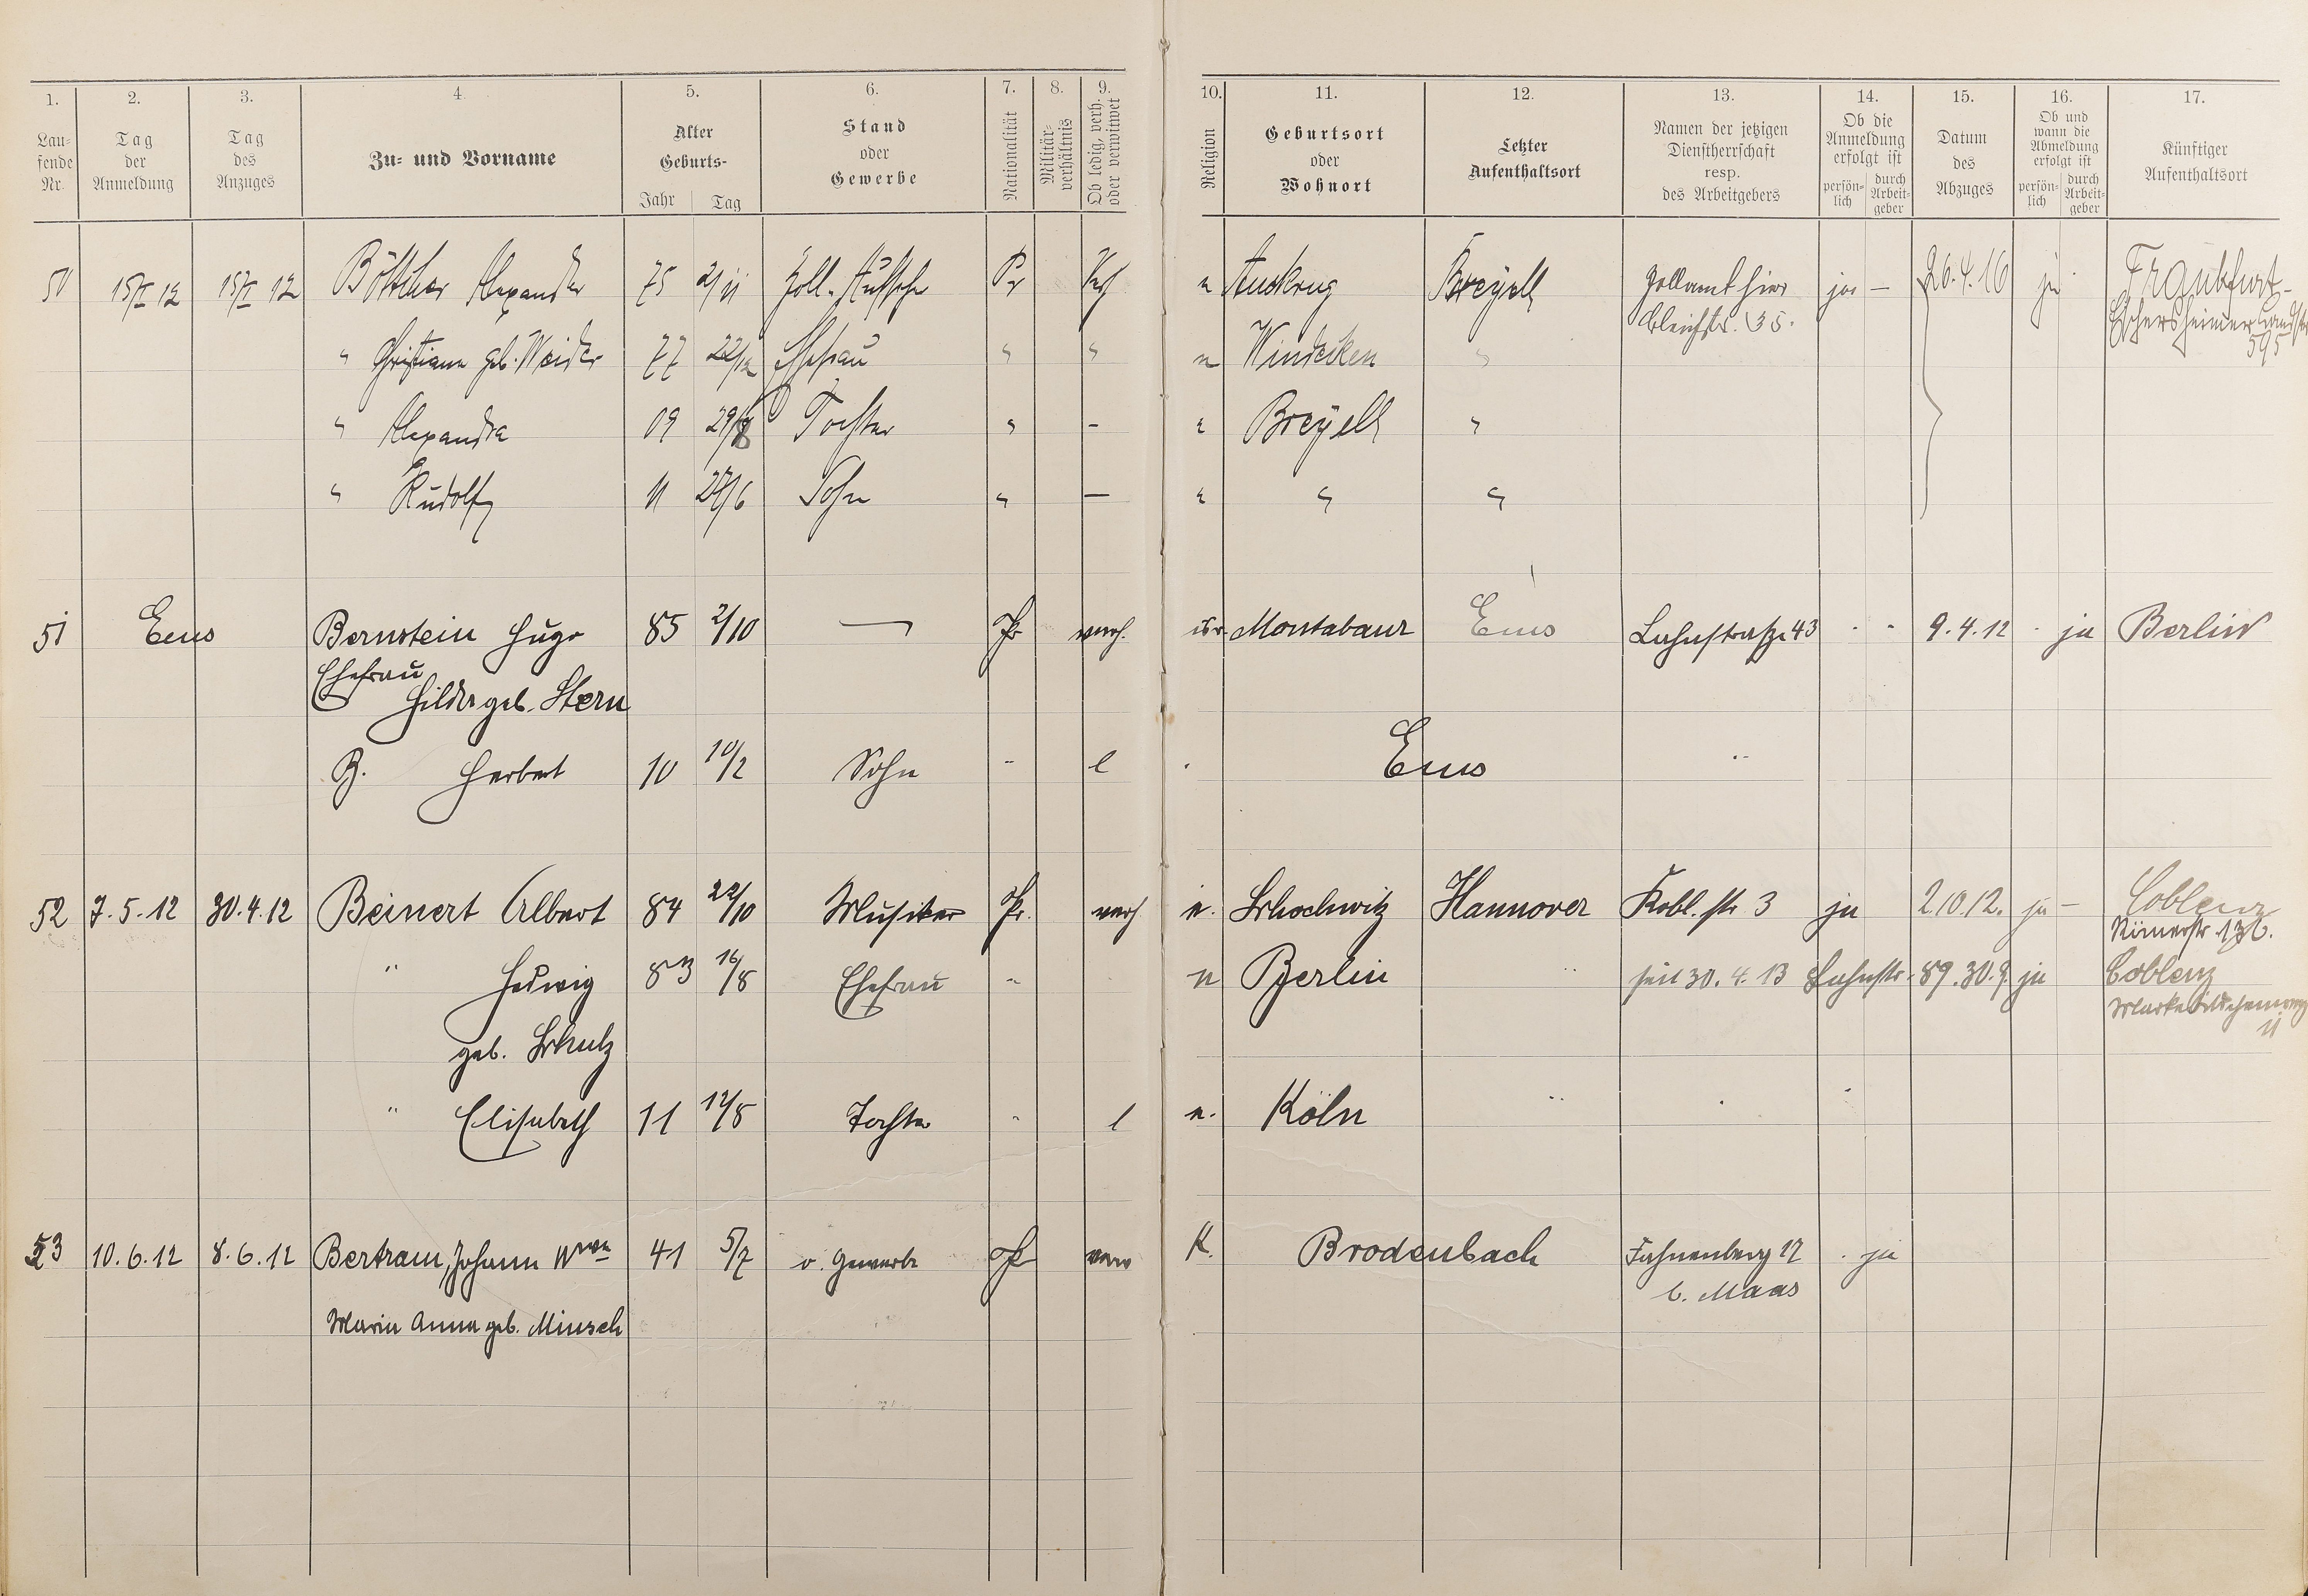 1. 2. 3. 4. 5. 6. 7. 8. 9. 10. 11. 12. 13. 14. 15. 16. 17.
Lau-fende Nr.
Tag der Anmeldung
Tag des Anzuges
Zu- und Vorname
Alter Geburts- Jahr Tag
Stand oder Gewerbe
Nationalität
Militär-verhältnis
Ob ledig, verh. oder verwitwet
Religion
Geburtsort oder Wohnort
Letzter Aufenthaltsort
Namen der jetzigen Dienstherrschaft resp. des Arbeitgebers
Ob die Anmeldung erfolgt ist persön-lich durch Arbeit-geber
Datum des Abzuges
Ob und wann die Abmeldung erfolgt ist persön-lich durch Arbeit-geber
Künftiger Aufenthaltsort
15/I 12 15/I 12 Böttcher Alexander 75 2/11 Pr Breyell Zollamt hier ja — 26.4.16 ja Frankfurt-
Bleichstr. 35. Eschersheimer Landstr
595
" Christiane geb. 77 22/12 Ehefrau " " Windecken "
" Alexandra 09 29/8 Tochter " - " Breyell "
" Rudolf 11 27/6 Sohn " — " " "
51 Ems Bernstein Hugo 85 2/10 — Pr verh. isr. Montabaur Ems Lahnstraße 43 9.4.12 ja Berlin
Ehefrau
Hilda geb. Stern
B. Herbert 10 10/2 Sohn " l Ems "
52 7.5.12 30.4.12 Beinert Albert 84 22/10 Musiker Pr. verh. e. Hannover Kobl. str 3 ja 2.10.12. ja — Coblenz
" Hedwig 83 16/8 Ehefrau " e Berlin " seit 30.4.13 Lahnstr. 89. 30.9. ja Coblenz
geb. Schulz
11
" Elisabeth 11 12/8 Tochter " l e. Köln " " "
53 10.6.12 8.6.12 Bertram, Johann Wwe 41 5/7 o. Gewerbe Pr verw K. Brodenbach Fahnenberg 17 ja
b. Maas
Maria Anna geb. Minsch